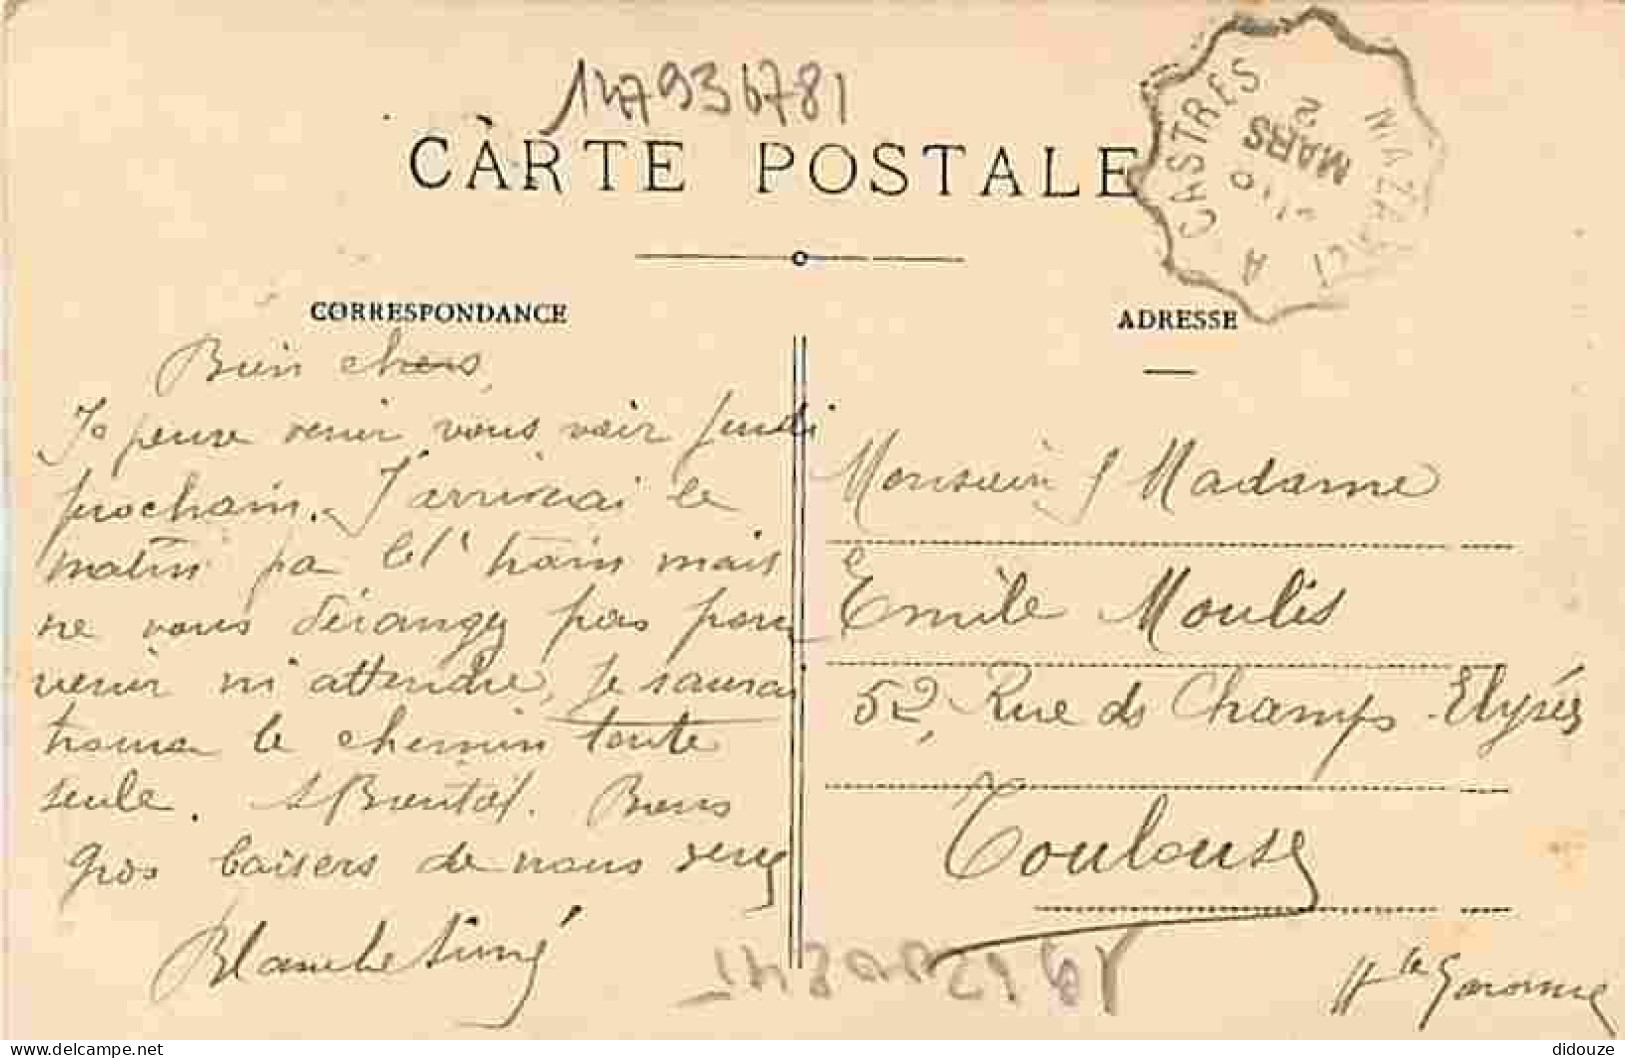 147936781
CARTE POSTALE
A CASTRES
2
MARS
10
CORRESPONDANCE
ADRESSE
Bien chers,
Je peux venir vous voir jeudi
prochain. J'arriverai le
matin par le 1r train mais
ne vous dérangez pas pour
venir m'attendre, je saurai
trouver le chemin toute
seule. A Bientôt. Bons
gros baisers de nous
Blanche
Monsieur & Madame
Emile Moulis
52, Rue des Champs-Elysées
Toulouse
Hte Garonne
didouze